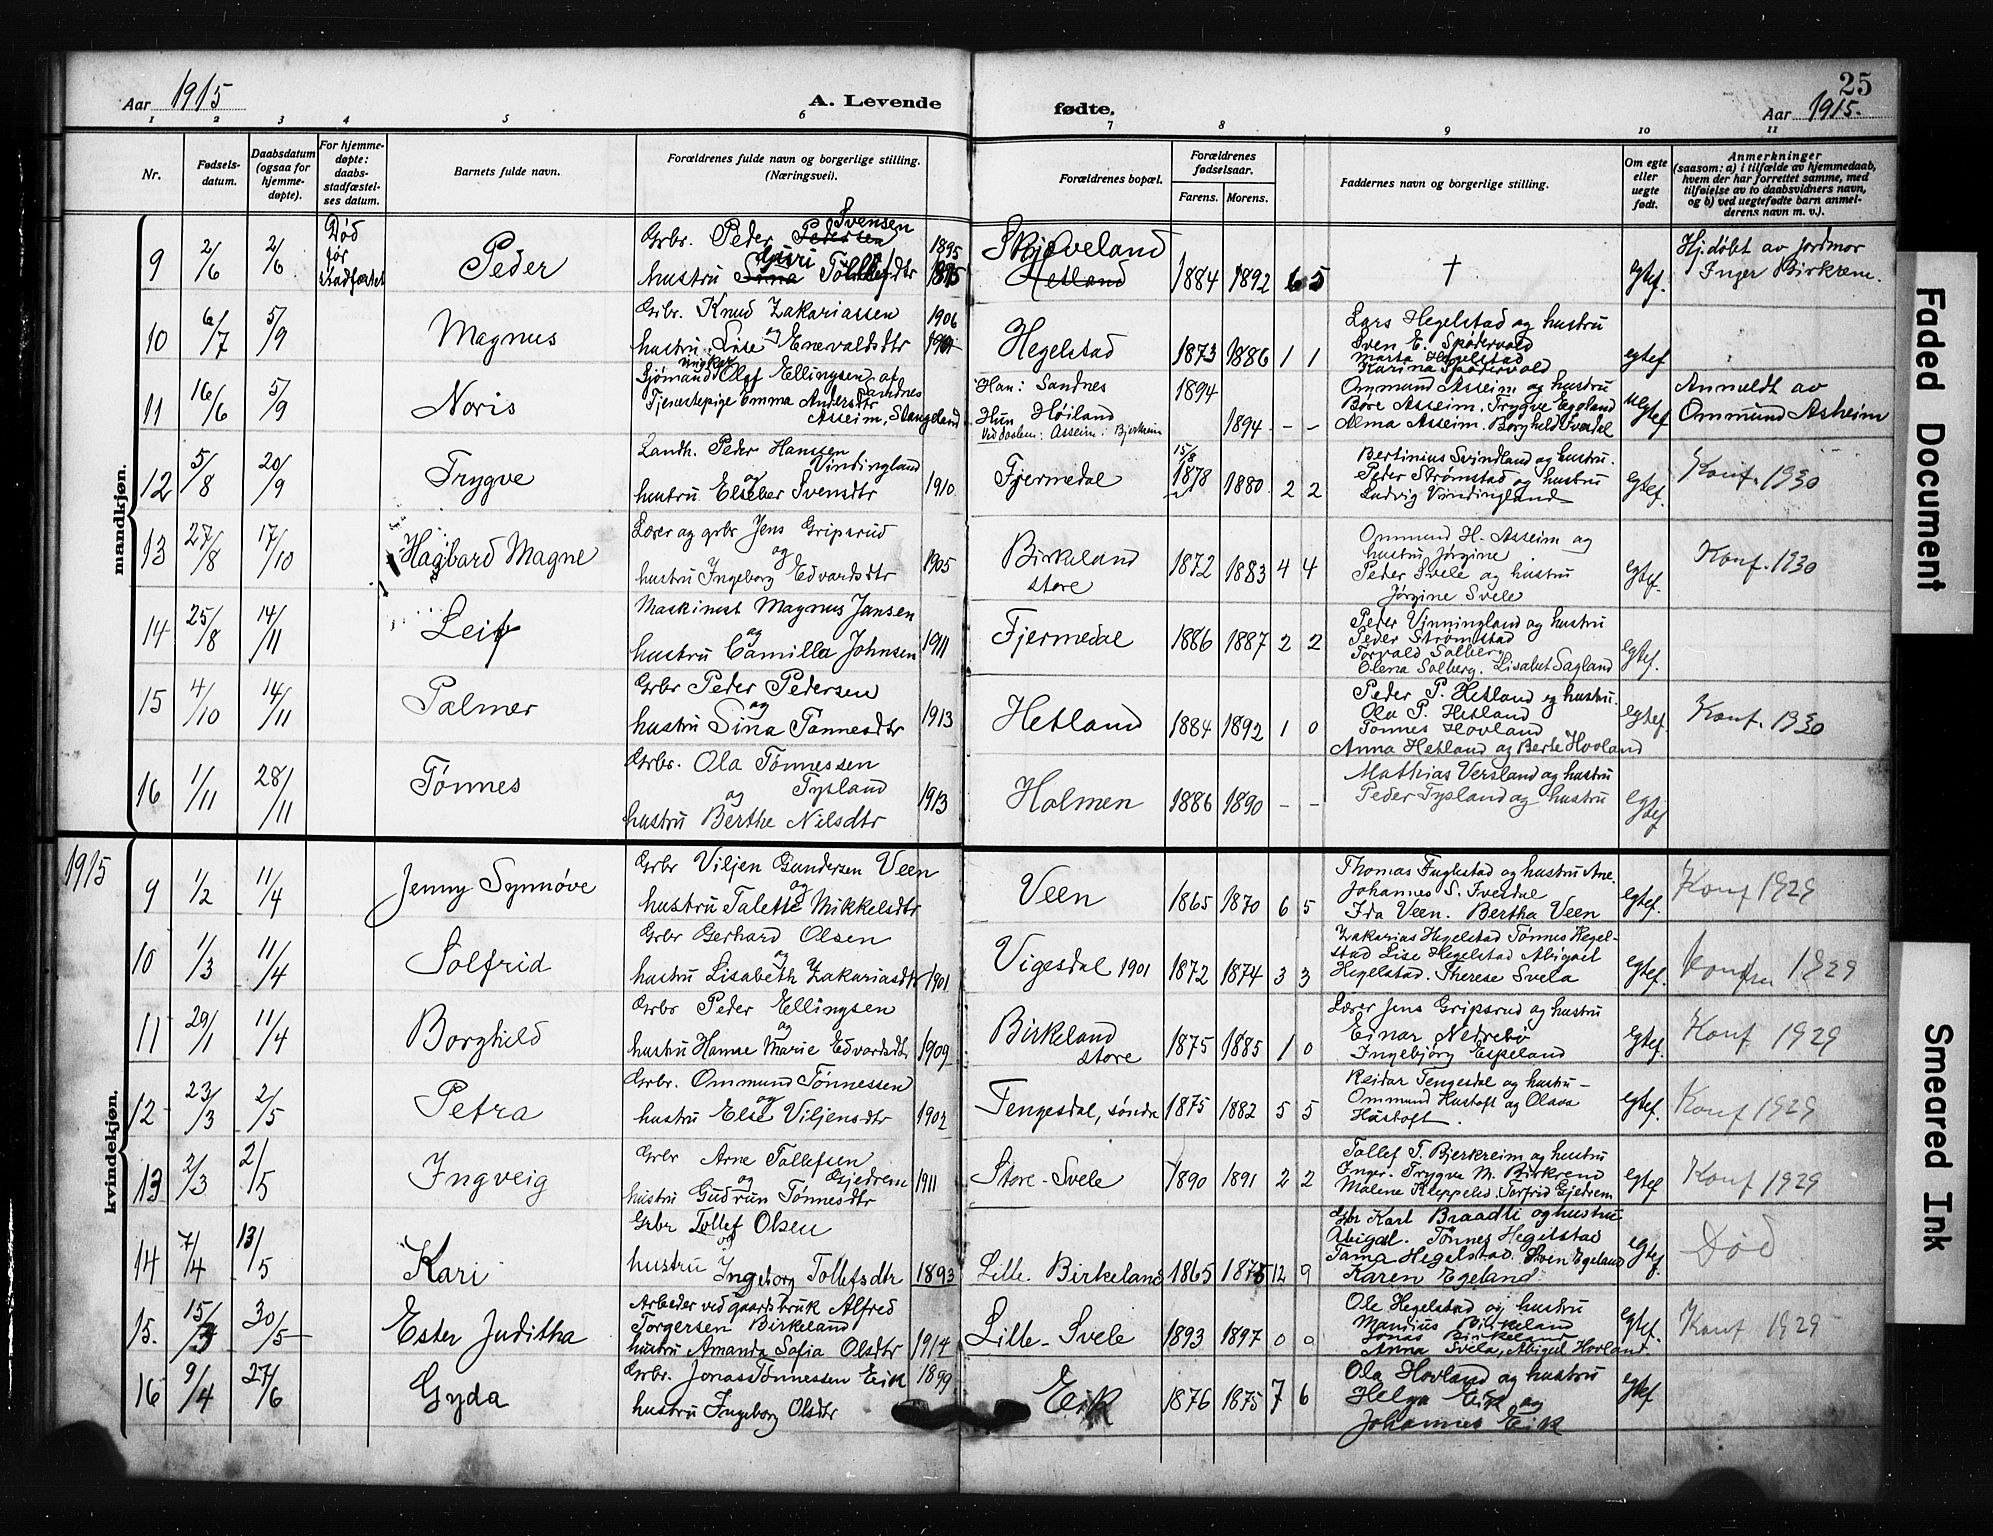 25
Aar 1915
A. Levende
fødte.
Aar 1915.
1 2 3 4 5 6 7 8 9 10 11
Nr.
Fødsels-
datum.
Daabsdatum
(ogsaa for
hjemme-
døpte).
For hjemme-
døpte:
daabs-
stadfæstel-
ses datum.
Barnets fulde navn.
Forældrenes fulde navn og borgerlige stilling.
(Næringsvei).
Forældrenes bopæl.
Forældrenes
fødselsaar.
Farens. Morens.
Faddernes navn og borgerlige stilling.
Om egte
eller
uegte
født.
Anmerkninger
(saasom: a) i tilfælde av hjemmedaab,
hvem der har forrettet samme, med
tilføielse av to daabsvidners navn,
og b) ved uegtefødte barn anmel-
derens navn m. v.).
mandkjøn.
9 2/6 2/6
Død
før
stadfæstet
Peder
Svensen
Grbr. Peder Pedersen 1895
Guri
hustru Sina Tollefsdtr
Skjæveland
Hetland
1884 1892 6 5
†
egtef.
Hj.døbt av jordmor
Inger Birkrem.
10 6/7 5/9 Magnus
Grbr. Knud Zakariassen 1906
og
hustru Lise Enevaldsdtr
Hegelstad 1873 1886 1 1
Lars Hegelstad og hustru
Sven E. Spødervold
Marta Hegelstad
Karina Spødervold
egtef.
11 16/6 5/9 Noris
ungkar
Sjømand Olaf Ellingsen af
Sandnes
Tjenestepige Emma Andersdtr
Asseim, Stangeland
Han: Sandnes 1894
Hun Høiland
Ved daaben: Asseim i Bjerkreim 1894 - -
Ommund Asseim og hustru
Bore Asseim. Trygve Egeland
Alma Asseim. Borghild Ivesdal
uegtef
Anmeldt av
Ommund Asheim
12 5/8 20/9 Trygve
Landh. Peder Hanssen
Vindingland
og
hustru Elseber Svensdtr 1910
Fjermedal
15/8
1878 1880 2 2
Bertinius Svindland og hustru.
Peder Strømstad og hustru
Ludvig Vindingland
egtef.
Konf. 1930
13 27/8 17/10 Hagbard Magne
Lærer og grbr Jens Gripsrud
og
hustru Ingeborg Edvardsdtr 1905
Birkeland
store
1872 1883 4 4
Ommund H. Asseim og
hustru Jørgine
Peder Svele og hustru
Jørgine Svele
egtef.
Konf. 1930
14 25/8 14/11 Leif
Maskinist Magnus Jansen
og
hustru Camilla Johnsen 1911
Fjermedal 1886 1887 2 2
Peder Vinningland og hustru
Peder Strømstad
Torvald Solberg
Olena Solberg. Lisabet Sagland
egtef.
15 4/10 14/11 Palmer
Grbr Peder Pedersen
og
hustru Sina Tønnesdtr 1913
Hetland 1884 1892 1 0
Peder P. Hetland og hustru.
Ola P. Hetland
Tønnes Hovland
Anna Hetland og Berte Hovland
egtef.
Konf. 1930
16 1/11 28/11 Tønnes
Grbr. Ola Tønnessen
Tysland
og
hustru Berthe Nilsdtr 1913
Holmen 1886 1890 - -
Mathias Versland og hustru
Peder Tysland og hustru
egtef
1915
kvindekjøn.
9 1/2 11/4 Jenny Synnøve
Grbr Viljen Gundersen Veen
og
hustru Talette Mikkelsdtr
Veen 1865 1870 6 5
Thomas Fuglestad og hustru Ane.
Johannes S. Ivesdal
Ida Veen. Bertha Veen
egtef.
Konf 1929
10 1/3 11/4 Solfrid
Grbr Gerhard Olsen
og
hustru Lisabeth Zakariasdtr 1901
Vigesdal 1901 1872 1874 3 3
Zakarias Hegelstad Tønnes Hegel-
stad Lise Hegelstad Abigail
Hegelstad. Therese Svela
egtef.
1929
11 29/1 11/4 Borghild
Grbr Peder Ellingsen
og
hustru Hanne Marie Edvardsdtr 1909
Birkeland
store
1875 1885 1 0
Lærer Jens Gripsrud og hustru
Einar Nedrebø
Ingebjørg Espeland
egtef.
Konf 1929
12 23/3 2/5 Petra
Grbr. Ommund Tønnessen
og
hustru Else Viljensdtr 1902
Tengesdal, søndre 1875 1882 5 5
Reidar Tengesdal og hustru -
Ommund Hustoft og Olava
Hustoft.
egtef.
Konf 1929
13 2/3 2/5 Ingveig
Grbr Arne Tollefsen
og Gjedrem
hustru Gudrun Tønnesdtr 1911
Store-Svele 1890 1891 2 2
Tollef T. Bjerkreim og hustru
Inger. Trygve M. Birkrem
Malene Kleppelid. Torfrid Gjedrem
egtef
Konf 1929
14 7/4 13/5 Kari
Grbr Tollef Olsen
og
hustru Ingeborg Tollefsdtr 1893
Lille Birkeland 1865 1875 12 9
Gbr Karl Braadli og hustru
Abigal. Tønnes Hegelstad
Tama Hegelstad. Sven Egeland
Karen Egeland
egtef.
Død
15. 15/3 30/5 Ester Juditha
Arbeder ved gaardsbruk Alfred
Torgersen Birkeland
hustru Amanda Sofia Olsdtr 1914
Lille-Svele 1893 1897 0 0
Ole Hegelstad og hustru
Mandius Birkeland
Jonas Birkeland
Anna Svela, Abigail Hovland.
egtef.
Konf 1929
16 9/4 27/6 Gyda
Grbr. Jonas Tønnessen Eik 1899
hustru Ingeborg Olsdtr
Eik 1876 1875 7 6
Ola Hovland og hustru
Helga Eik og
Johannes Eik
egtef
Faded Document
Smeared Ink